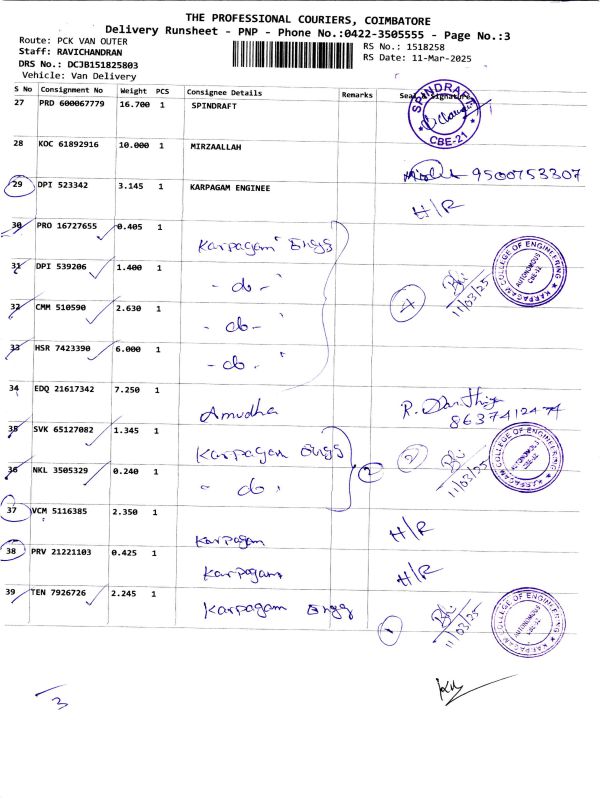 THE PROFESSIONAL COURIERS, COIMBATORE
Delivery Runsheet - PNP - Phone No.:0422-3505555 - Page No.:3
Route: PCK VAN OUTER
RS No.: 1518258
Staff: RAVICHANDRAN
RS Date: 11-Mar-2025
DRS No.: DCJB151825803
Vehicle: Van Delivery
S No Consignment No Weight PCS Consignee Details Remarks Seal & Signature
27 PRD 600067779 16.700 1 SPINDRAFT
SPINDRAFT
CBE-21
28 KOC 61892916 10.000 1 MIRZAALLAH
9500753307
29 DPI 523342 3.145 1 KARPAGAM ENGINEE H/R
30 PRO 16727655 0.405 1 Karpagam Engg
31 DPI 539206 1.400 1 - do - "
4 11/03/25
KARPAGAM COLLEGE OF ENGINEERING
AUTONOMOUS
CBE-32
32 CMM 510590 2.630 1 - do - "
33 HSR 7423390 6.000 1 - do - "
34 EDQ 21617342 7.250 1 Amudha
8637412474
35 SVK 65127082 1.345 1 Karpagam Engg
2 2 11/03/25
KARPAGAM COLLEGE OF ENGINEERING
AUTONOMOUS
CBE-32
36 NKL 3505329 0.240 1 - do -
37 VCM 5116385 2.350 1 Karpagam H/R
38 PRV 21221103 0.425 1 Karpagam H/R
39 TEN 7926726 2.245 1 Karpagam Engg
1 11/03/25
KARPAGAM COLLEGE OF ENGINEERING
AUTONOMOUS
CBE-32
3